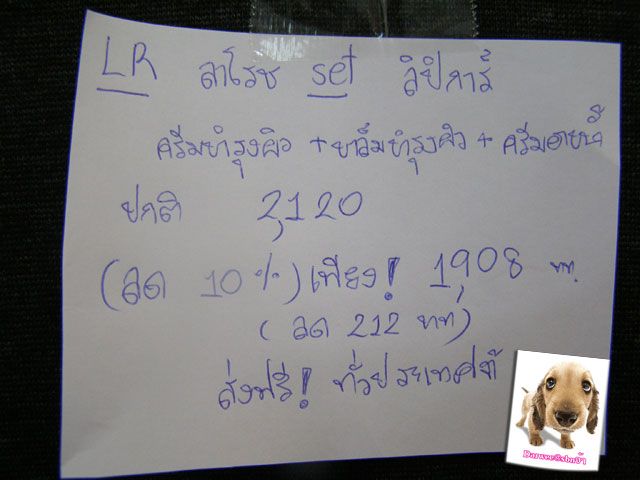 LR ลาโรช set ลิปิการ์
ครีมบำรุงผิว + บาล์มบำรุงผิว + ครีมอาบน้ำ
ปกติ 2,120
(ลด 10%) เพียง! 1,908 บาท.
(ลด 212 บาท)
ส่งฟรี! ทั่วประเทศ